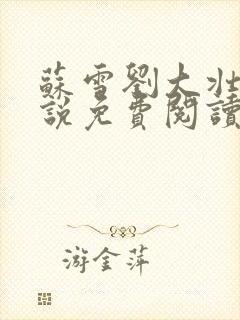 蘇雪劉大壯
說免費閱讀
游金萍